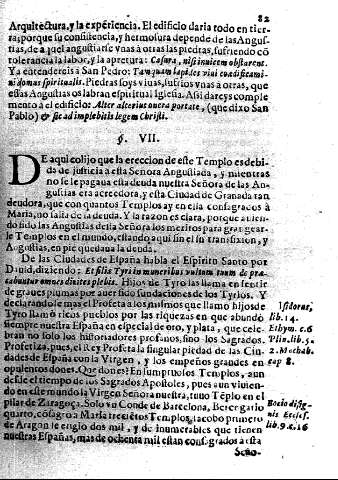 82
Arquitectura, y la experiencia. El edificio daria todo en tier-
ra, porque su consistencia, y hermosura depende de las Angus-
tias, de aquel angustiarse vnas à otras las piedras, sufriendo cõ
tolerancia la labor, y la apretura: Casura, nisi inuicem obstarent.
Ya entendereis à San Pedro: Tamquam lapides viui coedificami-
ni domus spiritualis. Piedras soys viuas, sufrios vnas à otras, que
essas Angustias os labran espiritual Iglesia. Assi dareys comple-
mento à el edificio: Alter alterius onera portate, (que dixo San
Pablo) & sic adimplebitis legem Christi.
§. VII.
DE aqui colijo que la ereccion de este Templo es debi-
da de justicia à esta Señora Angustiada, y mientras
no se le pagaua esta deuda nuestra Señora de las An-
gustias era acreedora, y esta Ciudad de Granada tan
deudora, que con quantos Templos ay en ella consagrados à
Maria, no salia de la deuda. Y la razon es clara, porque auien-
do sido las Angustias de esta Señora los meritos para grangear-
le Templos en el mundo, estando aqui sin el su transfixion, y
Angustias, en pie quedaua la deuda.
De las Ciudades de España habla el Espiritu Santo por
Dauid, diziendo: Et filiæ Tyri in muneribus vultum tuum de præ-
cabuntur omnes diuites plebis. Hijos de Tyro las llama en sentir
de graues plumas por auer sido fundaciones de los Tyrios. Y
declarandole mas el Profeta à los mismos que llamo hijos de
Tyro llamò ricos pueblos por las riquezas en que abundò
siempre nuestra España en especial de oro, y plata, que cele-
bran no solo los historiadores profanos, sino los Sagrados.
Profetiza, pues, el Rey Profeta la singular piedad de las Ciu-
dades de España con la Virgen, y los empeños grandes en
opulentos dones. Que dones? En sumptuosos Templos, aun
desde el tiempo de los Sagrados Apostoles, pues aun viuien-
do en este mundo la Virgen Señora nuestra, tuuo Tẽplo en el
pilar de Zaragoça. Solo vn Conde de Barcelona, Berengario
quarto, cõsagrò à Maria trecientos Tẽplos, Iacobo primero
de Aragon le erigio dos mil, y de inumerables que tienen
nuestras Españas, mas de ochenta mil estan consagrados a esta
Seño-
Isidorus,
lib. 14.
Ethym. c. 6
Plin. lib. 5.
2. Machab.
cap 8.
lib. 9. c. 16